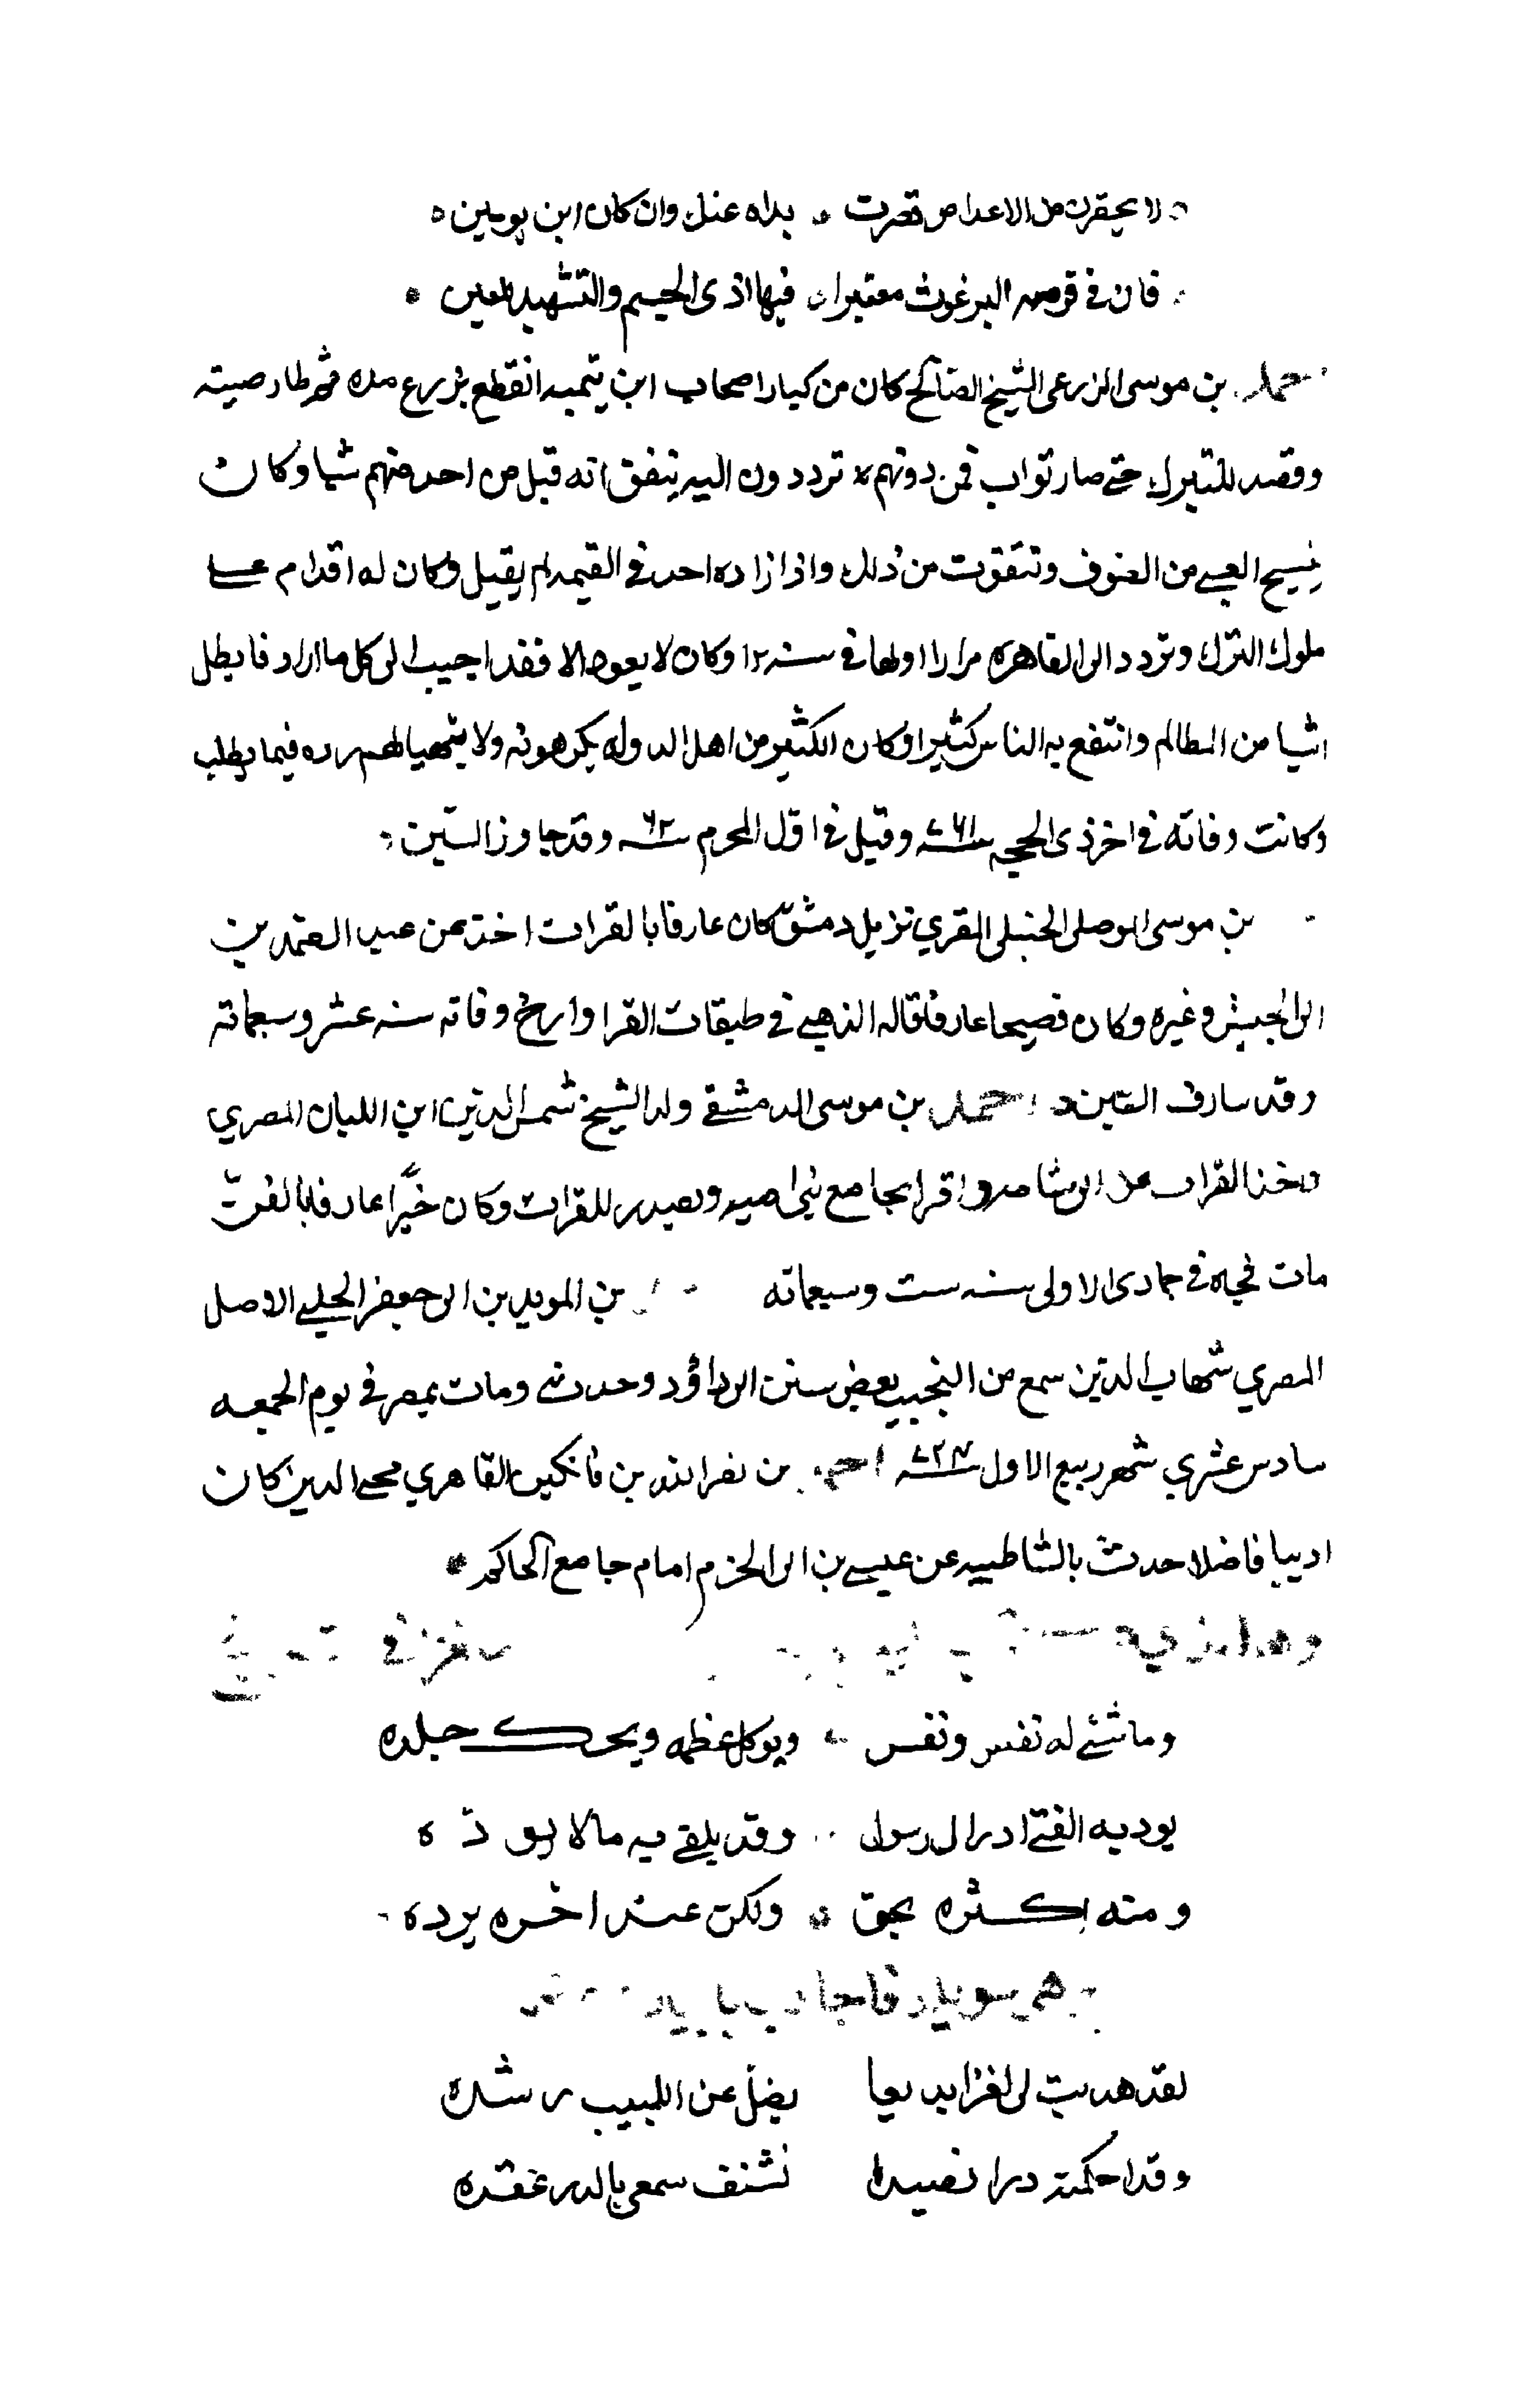 لا يحقرن من الاعدا من قصرت يداه عنك وان كان ابن يومين
فان في قرصه البرغوث معتبرا فيها اذى الجسم والتشهيد للعين
احمد بن موسى الزرعى الشيخ الصالح كان من كبار اصحاب ابن تيميه انقطع بزرع مده ثم طار صيته
وقصد للتبرك حتى صار نواب فمن دونهم يترددون اليه يتفق انه قبل من احد منهم شيا وكان
ينسج العبي من الصوف ويتقوت من ذلك واذا زاده احد في القيمه لم يقبل وكان له اقدام على
ملوك الترك وتردد الى القاهره مرارا اولها في سنه ١٢ وكان لا يعود الا فقد اجيب الى كل ما اراد فابطل
اشيا من المظالم وانتفع به الناس كثيرا وكان الكثير من اهل الدوله يكرهونه ولا يتهيا لهم رده فيما يطلب
وكانت وفاته في اخر ذى الحجه سنه ٧٦١ وقيل في اول المحرم سنه ٦٢ وقد جاوز الستين
بن موسى الموصلى الحنبلى المقري نزيل دمشق كان عارفا بالقرات اخذ عن عبد الصمد بن
ابى الجيش وغيره وكان فصيحا عارفا قاله الذهبي في طبقات القرا وارخ وفاته سنه عشر وسبعماته
وقد شارف الستين احمد بن موسى الدمشقي ولد الشيخ شمس الدين ابن اللبان المصري
واخذ القرات عن ابى شامه واقرا بجامع بنى اميه وتصدر للقرات وكان خيّرا عارفا بالفنّ
مات فجاه في جمادى الاولى سنه ست وسبعماته بن المويد بن ابى جعفر الحلبي الاصل
المصري شهاب الدين سمع من النجيب بعض سنن ابى داؤد وحدث ومات بمصر في يوم الجمعه
سادس عشري شهر ربيع الاول سنه احمد بن نصر الله بن القاهري محيي الدين كان
اديبا فاضلا حدث بالشاطبيه عن عيسى بن ابى الحزم امام جامع الحاكم
وما شئ له نفس ونفس ويوكل عظمه ويحك جلده
يوديه الفتى ادراك سول وقد يلقى به مالا يوده
ومنه اكثره بحق ولكن عند اخره يرده
لقد هديت لى لغزا بديعا يضل عن اللبيب رشده
وقد احكمته درا نضيدا تشنف سمعى بالدر عقده